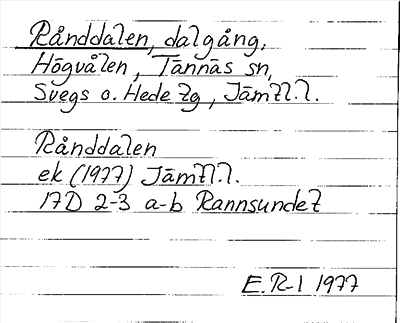 Rånddalen, dalgång,
Högvålen, Tännäs sn,
Svegs o. Hede tg, Jämtl.l.
Rånddalen
ek (1977) Jämtl.l.
17D 2-3 a-b Rannsundet
E.R-l 1977